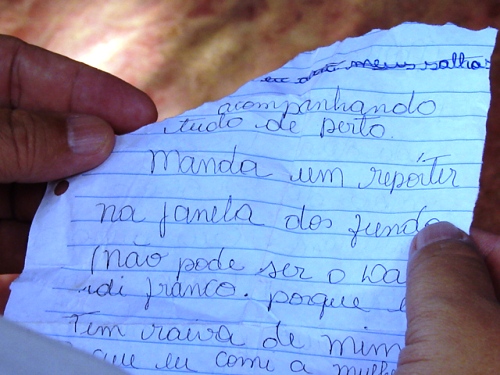 meus
acompanhando
tudo de perto.
Manda um repórter
na janela dos fundo
(não pode ser o Wa
idi franco. porque e
tem raiva de mim
que eu comi a mulhe